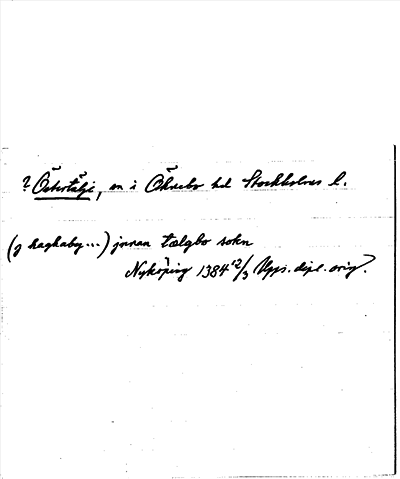 ? Östertälje, sn i Öknebo hd Stockholms l.
(j haghaby...) jnnan tælgbo sokn
Nyköping 1384 12/3 Upps. dipl. orig.